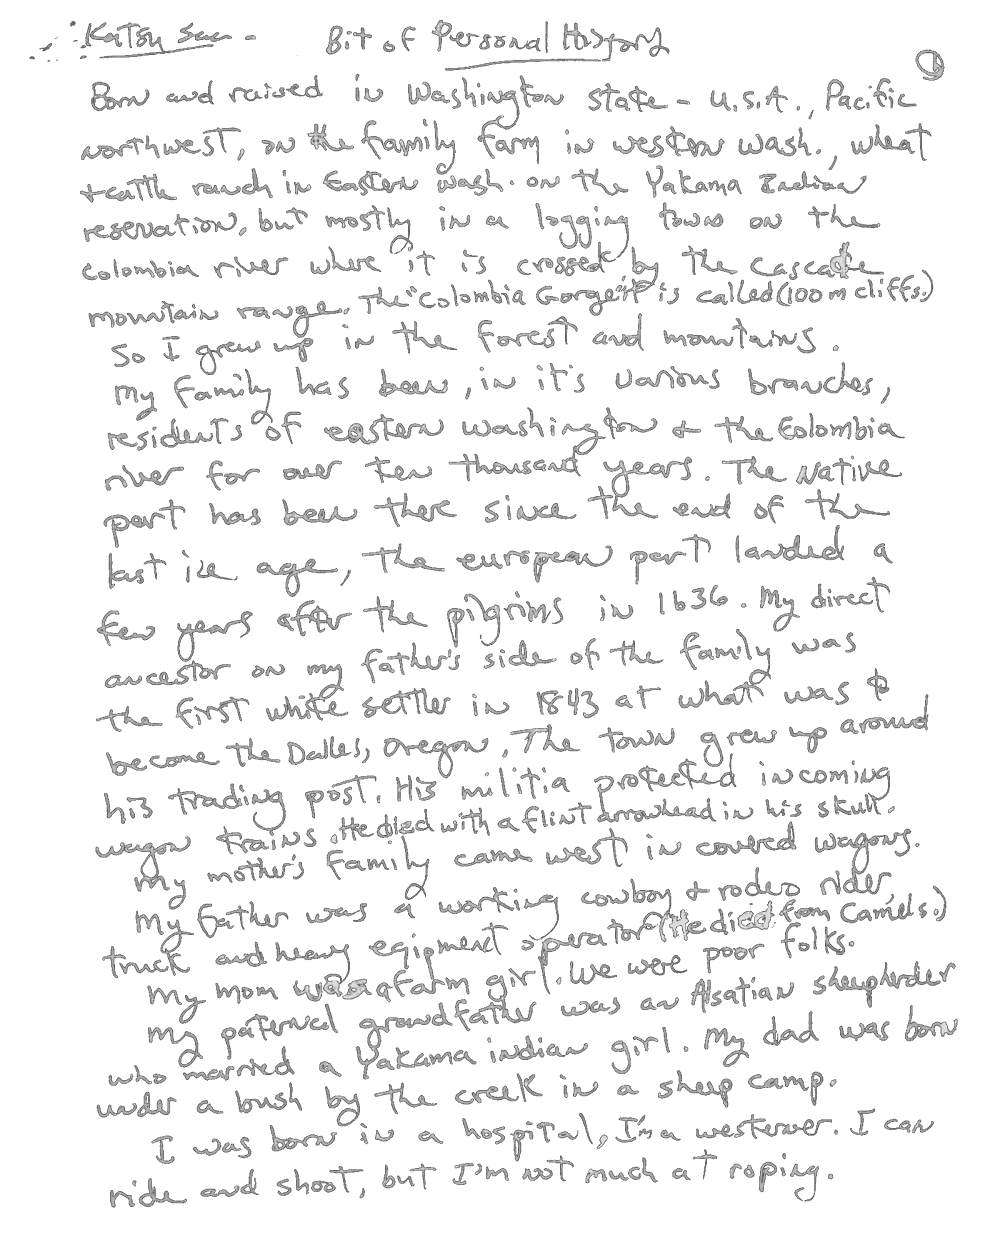 Katsu San - Bit of Personal History
1
Born and raised in Washington state - U.S.A., Pacific
northwest, on the family farm in western wash., wheat
+ cattle ranch in Eastern wash. on the Yakama Indian
reservation, but mostly in a logging town on the
Colombia river where it is crossed by the Cascade
mountain range. The "Colombia Gorge" it is called (100 m cliffs.)
So I grew up in the forest and mountains.
My family has been, in it's various branches,
residents of eastern Washington + the Colombia
river for over ten thousand years. The Native
part has been there since the end of the
last ice age, the european part landed a
few years after the pilgrims in 1636. My direct
ancestor on my father's side of the family was
the first white settler in 1843 at what was to
become the Dalles, Oregon, The town grew up around
his trading post. His militia protected incoming
wagon trains. He died with a flint arrowhead in his skull.
My mother's family came west in covered wagons.
My father was a working cowboy + rodeo rider,
truck and heavy eqipment operator (He died from Camels.)
My mom was a farm girl. We were poor folks.
My paternal grandfather was an Alsatian sheepherder
who married a Yakama indian girl. My dad was born
under a bush by the creek in a sheep camp.
I was born in a hospital, I'm a westerner. I can
ride and shoot, but I'm not much at roping.